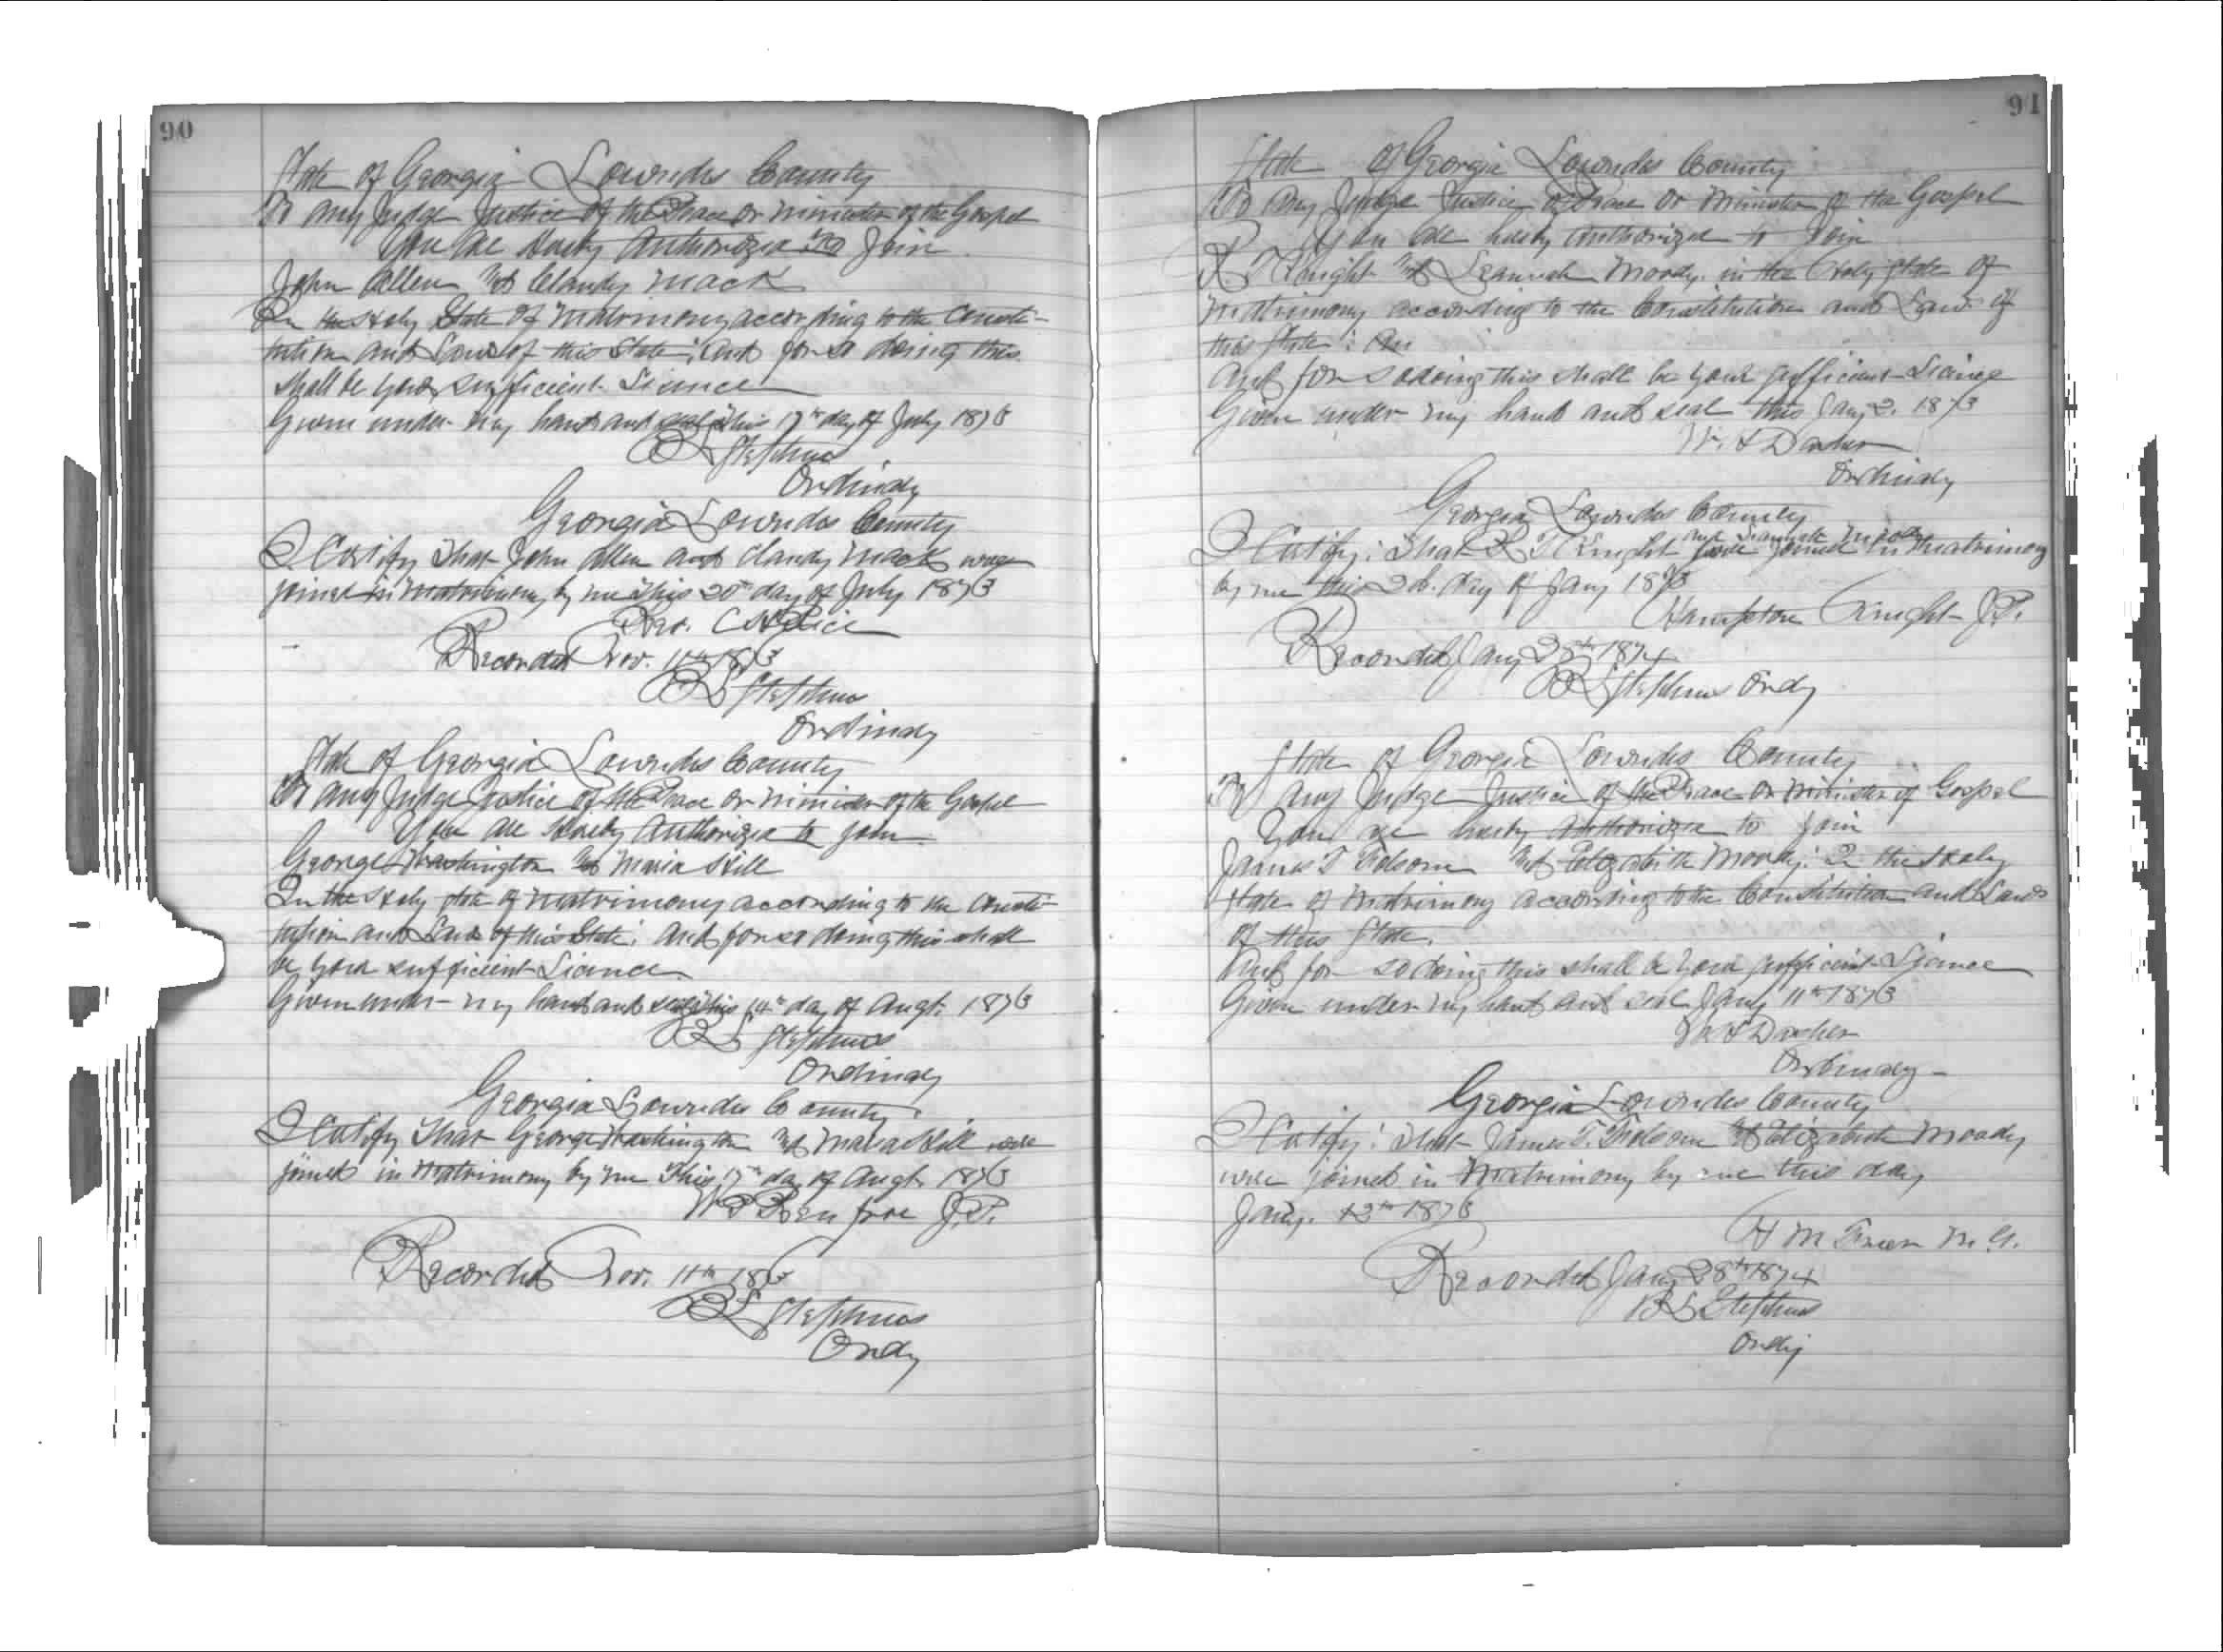 90
State of Georgia Lowndes County
To any Judge Justice of the Peace or minister of the Gospel
You are Hereby Authorized To Join
John Allen and Clandy Mack
In the Holy State of Matrimony according to the Consti-
tution and Laws of this State; And for so doing this
shall be your sufficient Licence
Given under my hand and seal this 17th day of July 1873
Stephens
Ordinary
Georgia Lowndes County
I Certify That John Allen and Clandy Mack were
joined in Matrimony by me This 20th day of July 1873
Rev. C
Recorded Nov. 11th 1873
Stephens
Ordinary
State of Georgia Lowndes County
To any Judge Justice of the Peace or minister of the Gospel
You are Hereby Authorized to join
George Washington and Maria Hill
In the Holy state of Matrimony according to the Consti-
tution and Laws of this State; And for so doing this shall
be your sufficient Licence
Given under my hand and seal this 14th day of Augt. 1873
Stephens
Ordinary
Georgia Lowndes County
I Certify That George Washington and Maria Hill were
joined in Matrimony by me This 17th day of Augt. 1873
Renfroe J.P.
Recorded Nov. 11th 1873
Stephens
Ordy
91
State of Georgia Lowndes County
To Any Judge Justice of Peace or Minister of the Gospel
You are hereby Authorized to Join
R T Knight and Moody in the Holy State of
Matrimony according to the Constitution and Laws of
this State: An
And for so doing this shall be your sufficient Licence
Given under my hand and seal this Jany 2. 1873
Ordinary
Georgia Lowndes County
I Certify: That R T Knight and Moody were joined in Matrimony
by me this 2d. day of Jany 1873
Hampton Knight J.P.
Recorded Jany 28th 1874
Stephens Ordy
State of Georgia Lowndes County
To Any Judge Justice of the Peace or Minister of Gospel
You are hereby Authorized to Join
James T Folsom and Elizabeth Moody: In the Holy
State of Matrimony according to the Constitution and Laws
of this State.
And for so doing this shall be your sufficient Licence
Given under my hand and seal Jany 11th 1873
Ordinary
Georgia Lowndes County
I Certify: That James T. Folsom and Elizabeth Moody
were joined in Matrimony by me this day
Jany. 12th 1873
H M M.G.
Recorded Jany 28th 1874
B L Stephens
Ordy